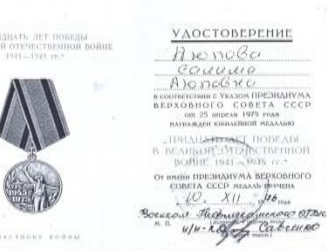 ДЦАТЬ ЛЕТ ПОБЕДЫ
Й ОТЕЧЕСТВЕННОЙ ВОЙНЕ
1941—1945 гг."
УДОСТОВЕРЕНИЕ
Аюпова
Салима
Аюповна
В СООТВЕТСТВИИ С УКАЗОМ ПРЕЗИДИУМА
ВЕРХОВНОГО СОВЕТА СССР
от 25 апреля 1975 года
НАГРАЖДЕН ЮБИЛЕЙНОЙ МЕДАЛЬЮ
„ТРИДЦАТЬ ЛЕТ ПОБЕДЫ
В ВЕЛИКОЙ ОТЕЧЕСТВЕННОЙ
ВОЙНЕ 1941—1945 гг."
От имени ПРЕЗИДИУМА ВЕРХОВНОГО
СОВЕТА СССР МЕДАЛЬ ВРУЧЕНА
10. XII 1976 года
Военком
М. П.
п/п-к Савченко
УЧАСТНИКУ ВОЙНЫ